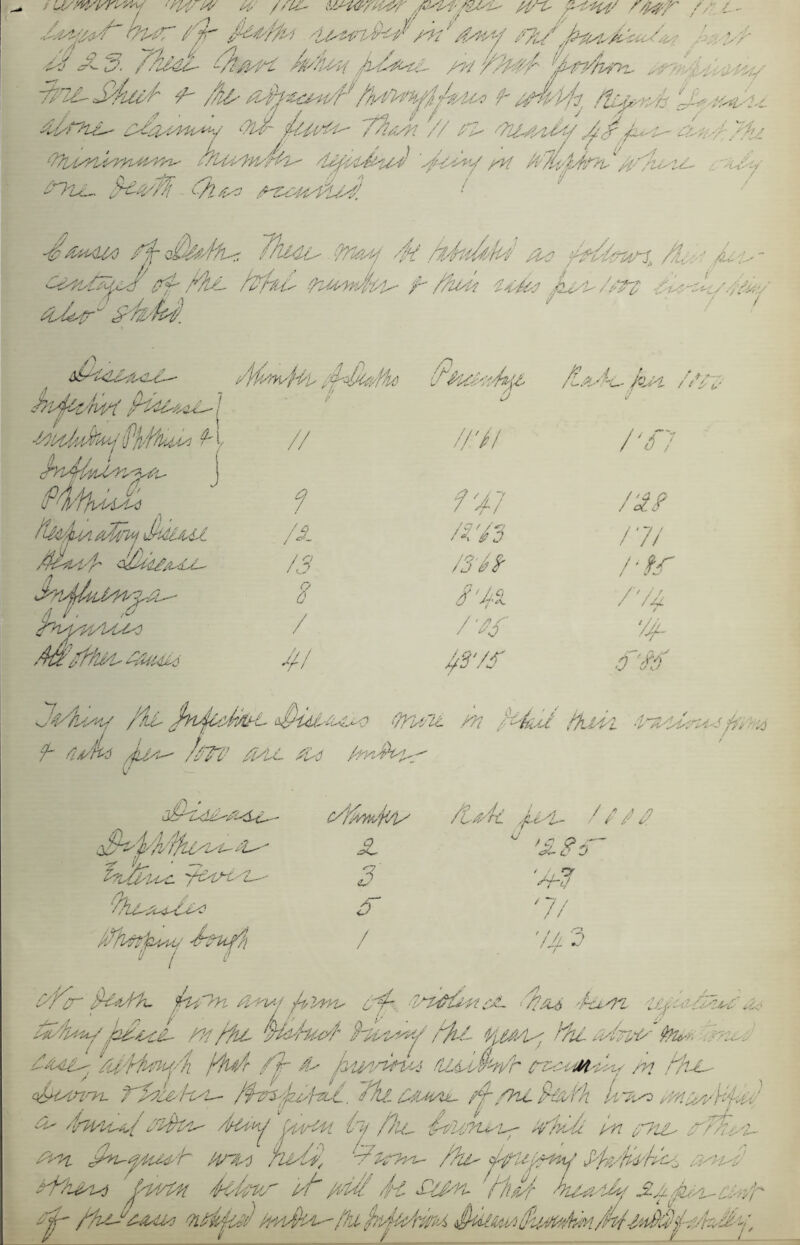 Returning now to the District proper we find that the
largest no. of deaths recorded in any one particular part
is 23. These have taken place in that portion comprising
Fore Sheet & the adjacent thoroughfares & courts, Regents Square
alone claiming no fewer than 11 or nearly 48 per cent. The
minimum number registered being in Whipton where only
one death has occurred.
Causes of Death. These may be tabulated as follows, their per-
centages of the total number & their rates per 1000 living being
also stated.
Disease Number of Deaths Percentage Rate per 1000
Infective Disease
excluding Phthisis & 11 11·61 1·57
Influenza
Phthisis 9 9·47 1·28
Respiratory Disease 12 12·63 1·71
Heart Disease 13 13·68 1·85
Influenza 8 8·42 1·14
Injuries 1 1·05 ·14
All other causes 41 43·15 5·85
Taking the Infective Diseases more in detail their various forms
& rates per 1000 are as under:-
Disease Number Rate per 1000
Diphtheria 2 ·285
Enteric Fever 3 ·43
Measles 5 ·71
Whooping Cough 1 ·143
No death from any form of violence has been registered as
taking place in the District during the year, the above mentioned
case, although that of a previous resident occurring in the
Devon & Exeter Hospital. The cause of one death was uncertified,
a burial order being given by the Coroner, while in one other
an Inquest was held. From the foregoing statistics and
others given below it will be seen that nearly 24 per cent
of the cases notified under the Infectious Diseases Prevention Act ended fatally.